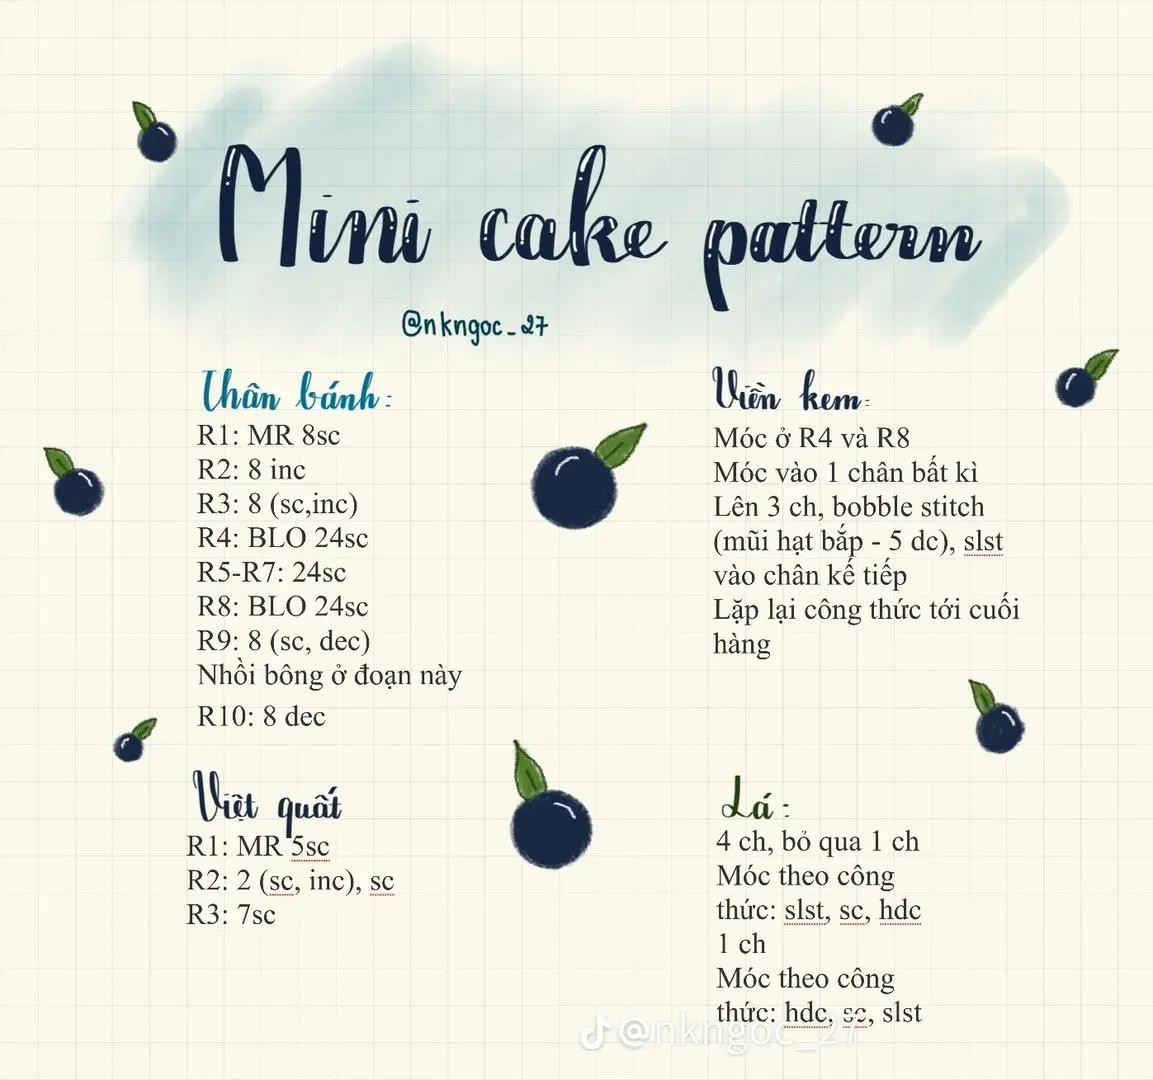 Mini cake pattern
@nkngoc_27
Thân bánh:
R1: MR 8sc
R2: 8 inc
R3: 8 (sc,inc)
R4: BLO 24sc
R5-R7: 24sc
R8: BLO 24sc
R9: 8 (sc, dec)
Nhồi bông ở đoạn này
R10: 8 dec
Viền kem:
Móc ở R4 và R8
Móc vào 1 chân bất kì
Lên 3 ch, bobble stitch
(mũi hạt bắp - 5 dc), slst
vào chân kế tiếp
Lặp lại công thức tới cuối
hàng
Việt quất
R1: MR 5sc
R2: 2 (sc, inc), sc
R3: 7sc
Lá:
4 ch, bỏ qua 1 ch
Móc theo công
thức: slst, sc, hdc
1 ch
Móc theo công
thức: hdc, sc, slst
@nkngoc_27